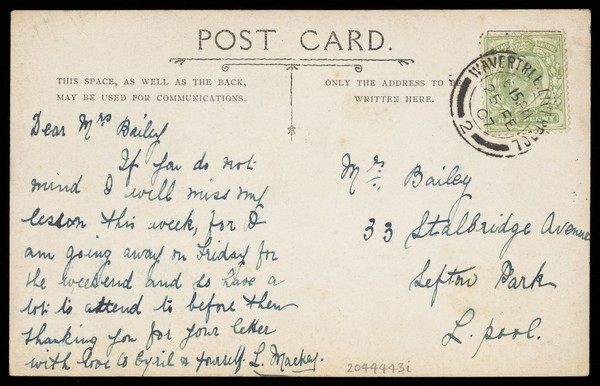 POST CARD.
THIS SPACE, AS WELL AS THE BACK,
MAY BE USED FOR COMMUNICATIONS.
ONLY THE ADDRESS TO BE
WRITTEN HERE.
WAVERTREE LIVERPOOL
FE 25
07
2
Dear Mrs Bailey
If you do not
mind I will miss my
lesson this week, for I
am going away on Friday for
the weekend and so have a
lot to attend to before then
thanking you for your letter
with love to Cyril & yourself. L. Mackey.
Mrs Bailey
33 Stalbridge Avenue
Sefton Park
L.pool.
2044443i